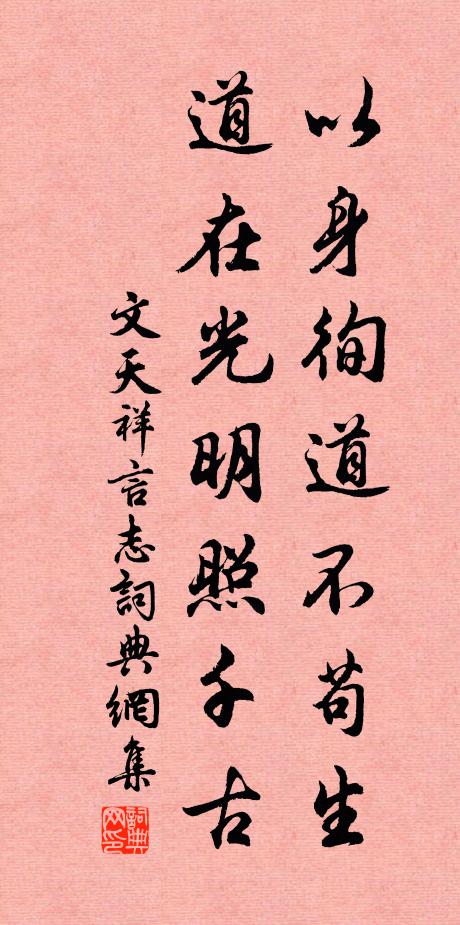 以身徇道不苟生
道在光明照千古
文天祥言志詞典網集
詞典网印